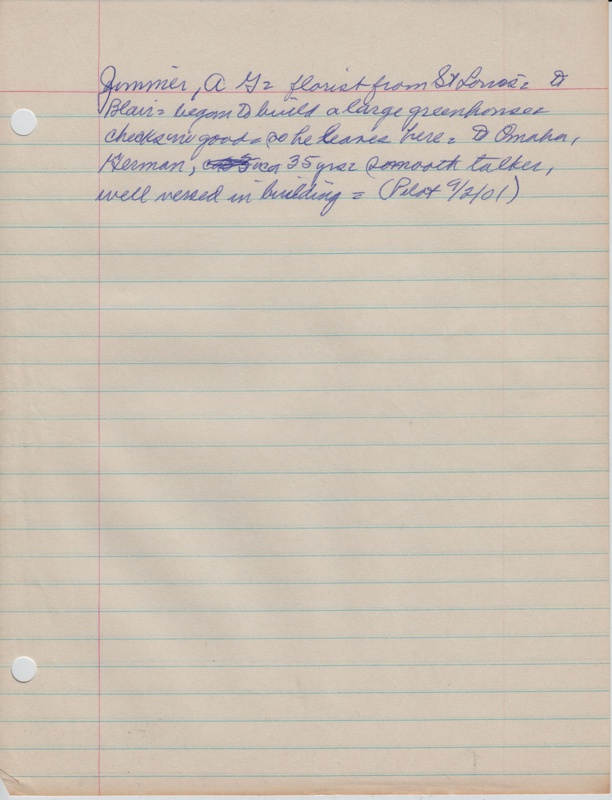 Zimmer, A G= florist from St Louis= to
Blair= began to build a large greenhouse=
checks no good= so he leaves here= to Omaha,
Herman, ca 35 yrs= smooth talker,
well versed in building = (Pilot 9/2/01)